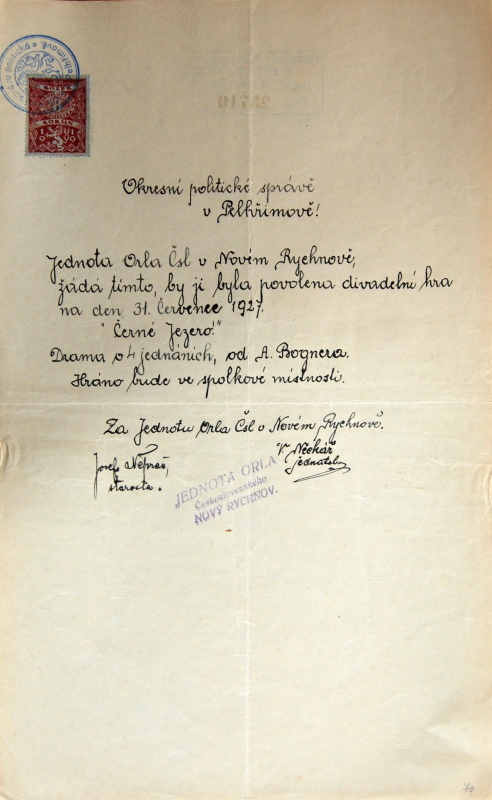 KOLEK
KORUN
Okresní politické správě
v Pelhřimově!
Jednota Orla Čsl v Novém Rychnově,
žádá tímto, by jí byla povolena divadelní hra
na den 31. Červenec 1927.
"Černé Jezero!"
Drama o 4 jednáních, od A. Bognera.
Hráno bude ve spolkové místnosti.
Za Jednotu Orla Čsl v Novém Rychnově.
Josef
starosta.
V.
jednatel
JEDNOTA ORLA
Československého
NOVÝ RYCHNOV.